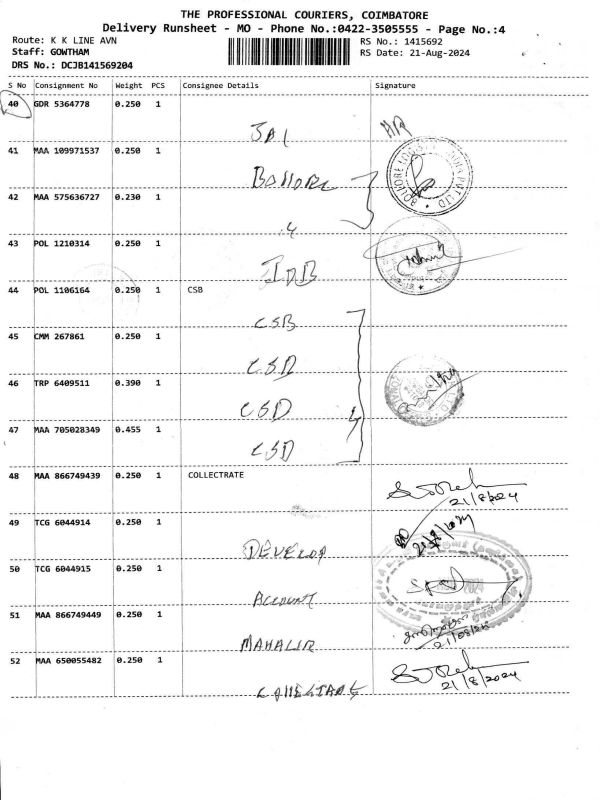 THE PROFESSIONAL COURIERS, COIMBATORE
Delivery Runsheet - MO - Phone No.:0422-3505555 - Page No.:4
Route: K K LINE AVN
RS No.: 1415692
Staff: GOWTHAM
RS Date: 21-Aug-2024
DRS No.: DCJB141569204
S No Consignment No Weight PCS Consignee Details Signature
40 GDR 5364778 0.250 1
41 MAA 109971537 0.250 1
BOLLORE
42 MAA 575636727 0.230 1
43 POL 1210314 0.250 1
44 POL 1106164 0.250 1 CSB
CSB
45 CMM 267861 0.250 1
CSB
46 TRP 6409511 0.390 1
CSB
47 MAA 705028349 0.455 1
CSB
48 MAA 866749439 0.250 1 COLLECTRATE
21/8/2024
49 TCG 6044914 0.250 1
DEVELOP
50 TCG 6044915 0.250 1
ACCOUNT
51 MAA 866749449 0.250 1
MAHALIR
21/08/24
52 MAA 650055482 0.250 1
21/8/2024